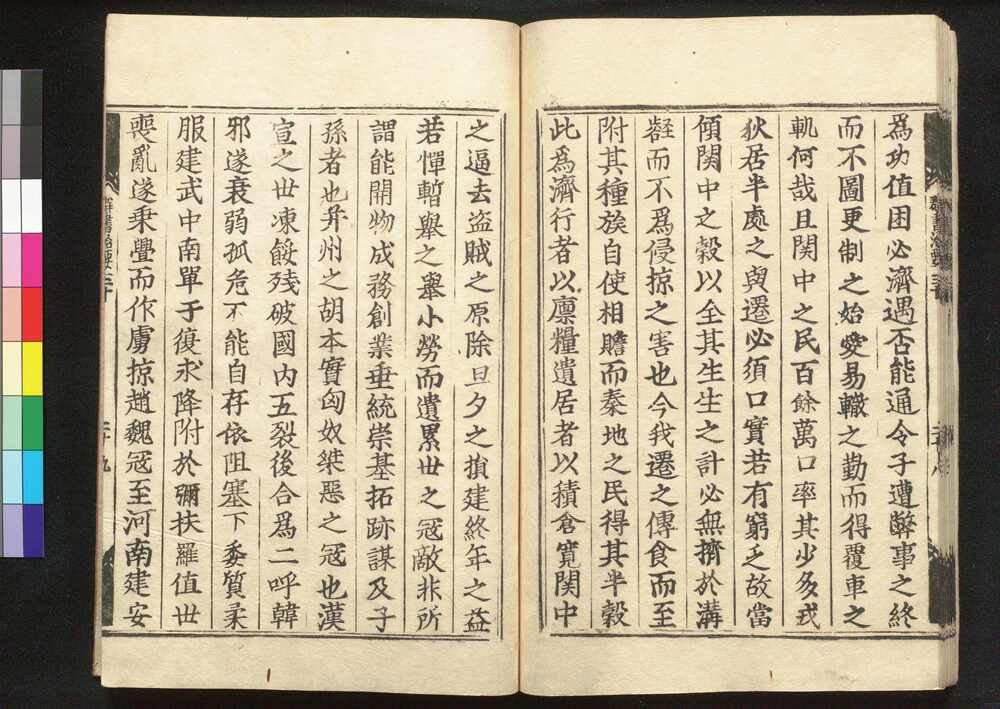 為功值困必濟遇否能通今子遭弊事之終
而不圖更制之始愛易轍之勤而得覆車之
軌何哉且関中之民百餘萬口率其少多戎
狄居半處之與遷必須口實若有窮乏故當
傾関中之穀以全其生生之計必無擠於溝
壑而不為侵掠之害也今我遷之傳食而至
附其種族自使相贍而秦地之民得其半穀
此為濟行者以廩糧遺居者以積倉寬関中
之逼去盗賊之原除旦夕之損建終年之益
若憚暫舉之小勞而遺累世之寇敵非所
謂能開物成務創業垂統崇基拓跡謀及子
孫者也并州之胡本實匈奴桀惡之寇也漢
宣之世凍餒殘破國内五裂後合為二呼韓
邪遂衰弱孤危不能自存依阻塞下委質柔
服建武中南單于復求降附於彌扶羅值世
喪亂遂乗舋而作虜掠趙魏寇至河南建安
群書治要三十
二十九